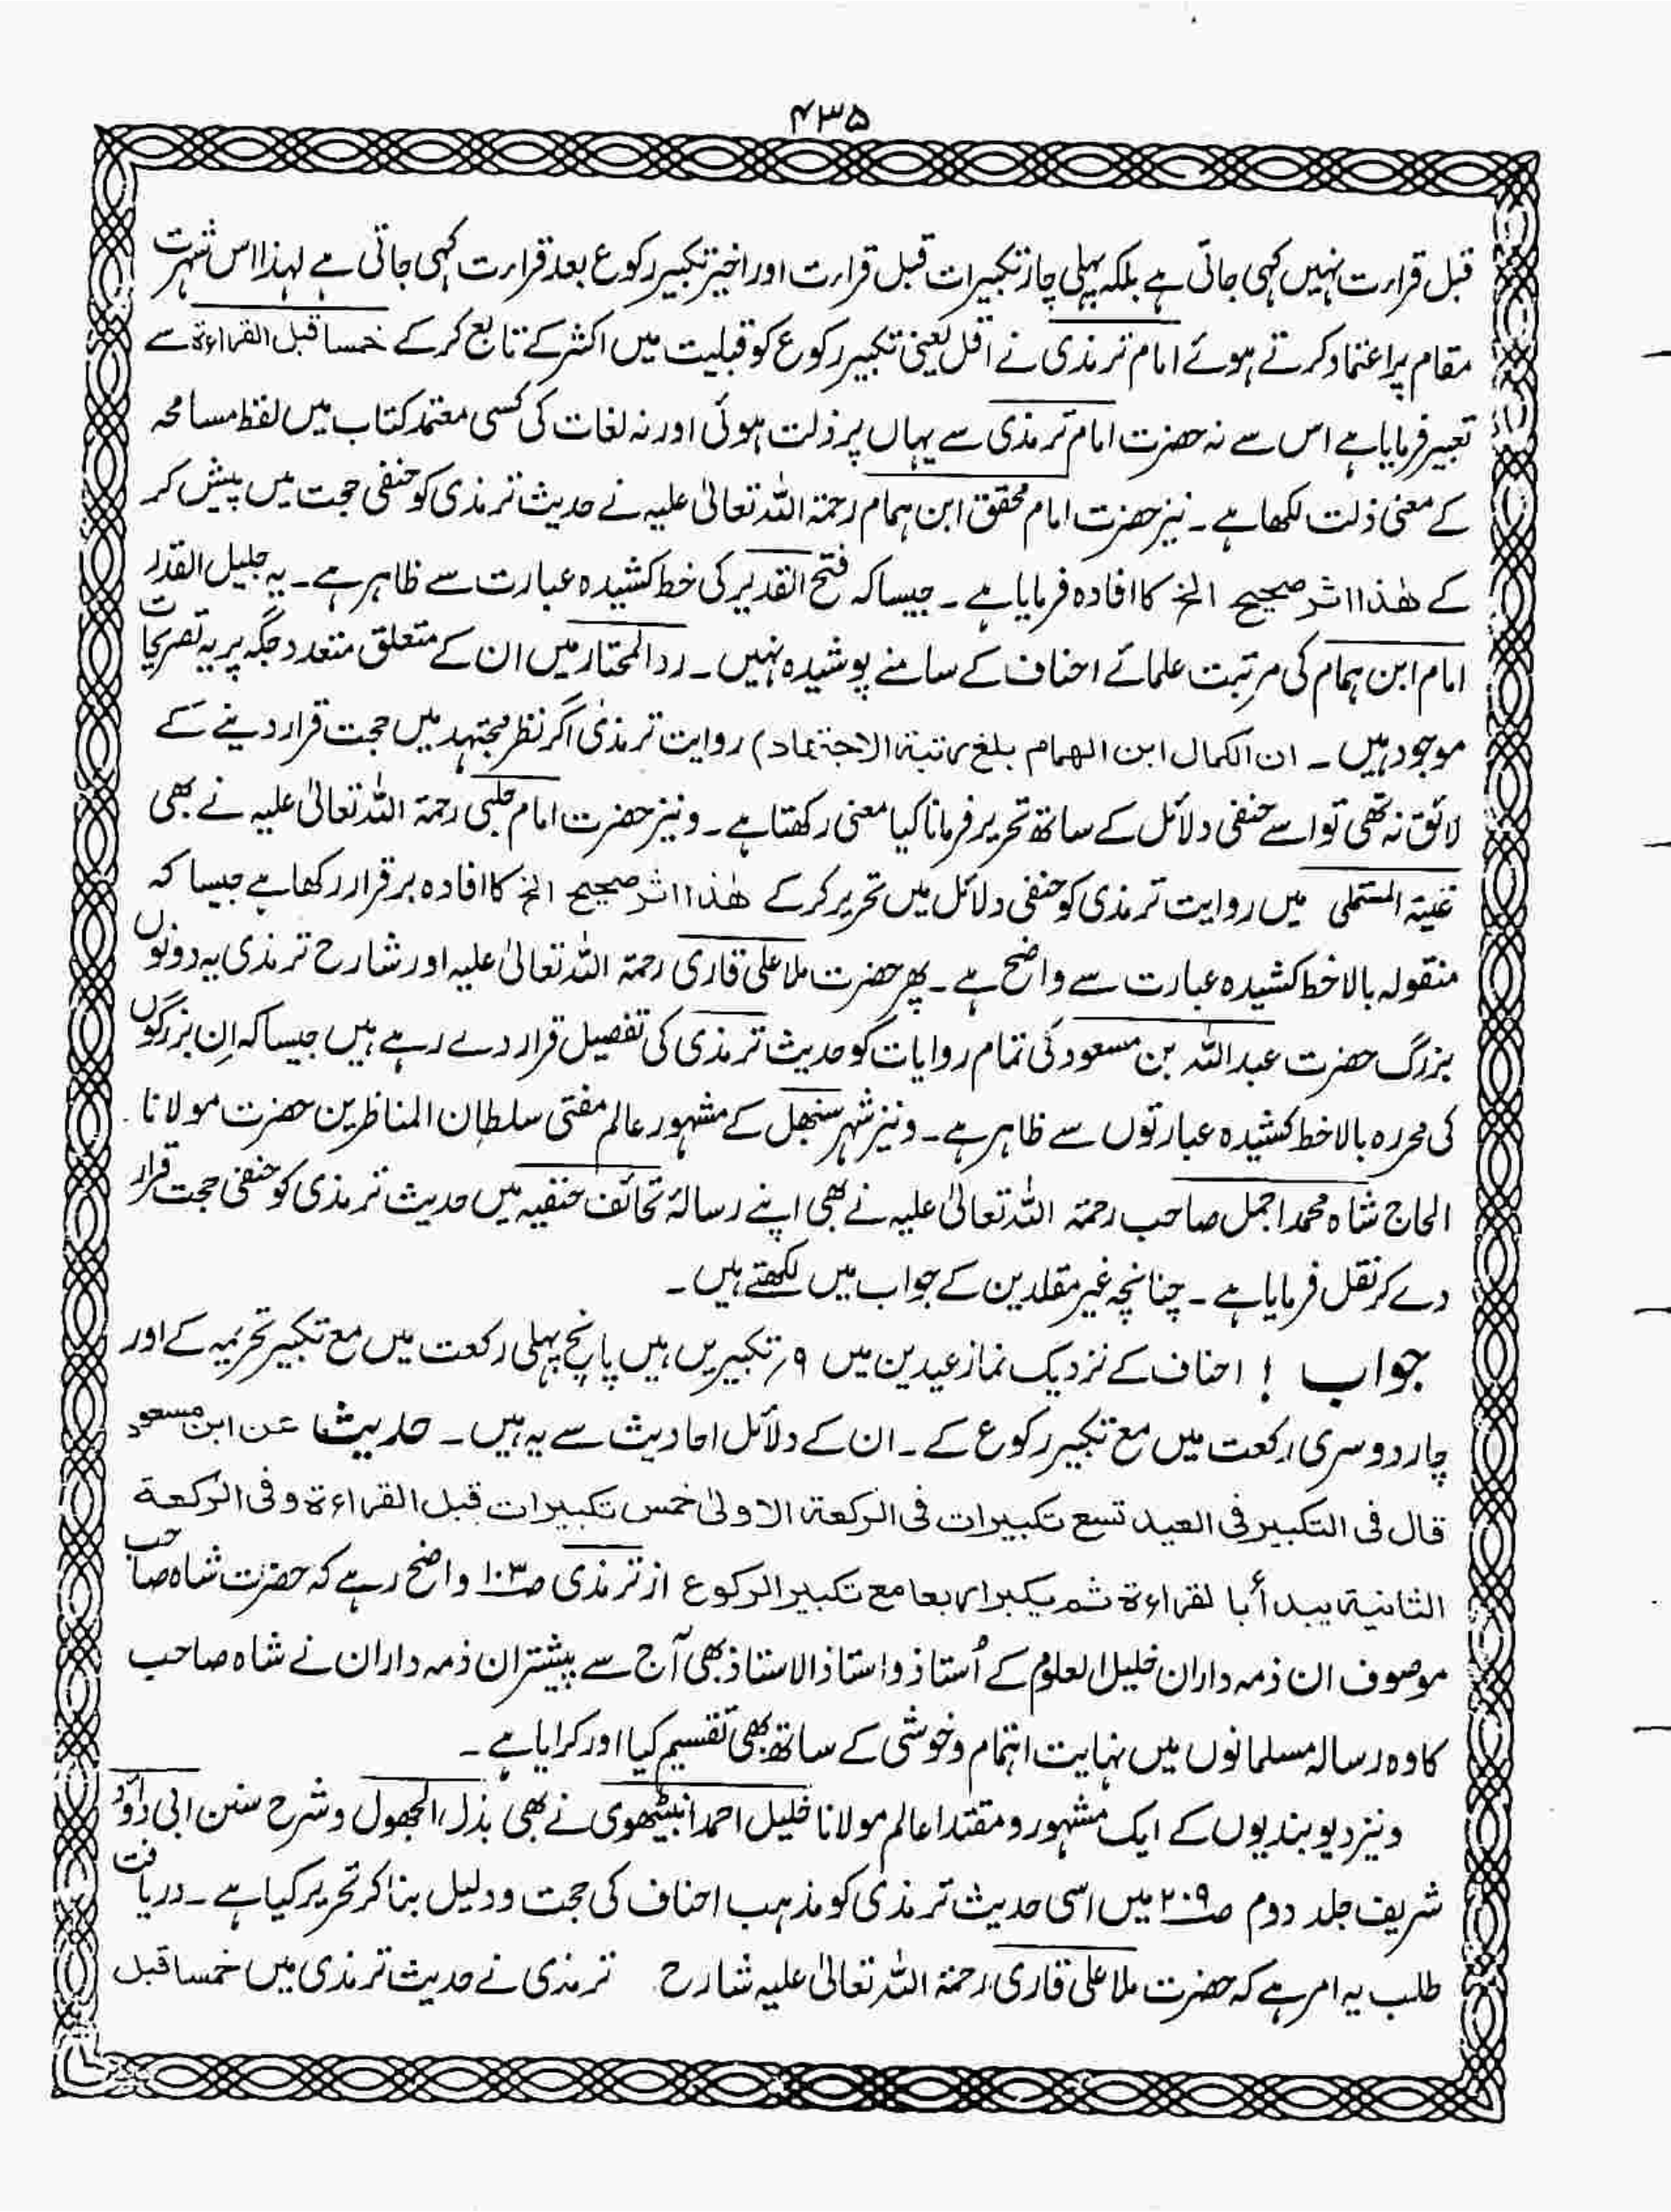 ۴۳۵
قبل قرارت نہیں کہی جاتی ہے بلکہ پہلی چار تکبیرات قبل قرارت اور اخیر تکبیر رکوع بعد قرارت کہی جاتی ہے لہذا اس شہرت
مقام پر اعتماد کرتے ہوئے امام ترمذی نے اقل یعنی تکبیر رکوع کو قبلیت میں اکثر کے تابع کر کے خمسا قبل القراءۃ سے
تعبیر فرمایا ہے اس سے نہ حضرت امام ترمذی سے یہاں پر ذلت ہوئی اور نہ لغات کی کسی معتمد کتاب میں لفظ مسامحہ
کے معنی ذلت لکھا ہے ۔ نیز حضرت امام محقق ابن ہمام رحمۃ اللہ تعالیٰ علیہ نے حدیث ترمذی کو حنفی حجت میں پیش کر
کے ھٰذا اثر صحیح الخ کا افادہ فرمایا ہے ۔ جیسا کہ فتح القدیر کی خط کشیدہ عبارت سے ظاہر ہے ۔ یہ جلیل القدر
امام ابن ہمام کی مرتبت علمائے احناف کے سامنے پوشیدہ نہیں ۔ رد المحتار میں ان کے متعلق متعدد جگہ پر یہ تصریحات
موجود ہیں ۔ ان الکمال ابن الھمام بلغ رتبۃ الاجتھاد) روایت ترمذی اگر نظر مجتہد میں حجت قرار دینے کے
لائق نہ تھی تو اسے حنفی دلائل کے ساتھ تحریر فرمانا کیا معنی رکھتا ہے ۔ و نیز حضرت امام حلبی رحمۃ اللہ تعالیٰ علیہ نے بھی
غنیۃ المستملی میں روایت ترمذی کو حنفی دلائل میں تحریر کر کے ھٰذا اثر صحیح الخ کا افادہ برقرار رکھا ہے جیسا کہ
منقولہ بالا خط کشیدہ عبارت سے واضح ہے ۔ پھر حضرت ملا علی قاری رحمۃ اللہ تعالیٰ علیہ اور شارح ترمذی یہ دونوں
بزرگ حضرت عبد اللہ بن مسعود کی تمام روایات کو حدیث ترمذی کی تفصیل قرار دے رہے ہیں جیسا کہ ان بزرگوں
کی محررہ بالا خط کشیدہ عبارتوں سے ظاہر ہے ۔ و نیز شہر سنبھل کے مشہور عالم مفتی سلطان المناظرین حضرت مولانا
الحاج شاہ محمد اجمل صاحب رحمۃ اللہ تعالیٰ علیہ نے بھی اپنے رسالۂ تحائف حنفیہ میں حدیث ترمذی کو حنفی حجت قرار
دے کر نقل فرمایا ہے ۔ چنانچہ غیر مقلدین کے جواب میں لکھتے ہیں ۔
جواب ! احناف کے نزدیک نماز عیدین میں ۹ر تکبیریں ہیں پانچ پہلی رکعت میں مع تکبیر تحریمہ کے اور
چار دوسری رکعت میں مع تکبیر رکوع کے ۔ ان کے دلائل احادیث سے یہ ہیں ۔ حدیث عن ابن مسعود
قال فی التکبیر فی العید تسع تکبیرات فی الرکعۃ الاولیٰ خمس تکبیرات قبل القراءۃ وفی الرکعۃ
الثانیۃ یبدأ بالقراءۃ ثم یکبر اربعا مع تکبیر الرکوع از ترمذی ص۱۰۳ واضح رہے کہ حضرت شاہ صاحب
موصوف ان ذمہ داران خلیل العلوم کے اُستاذ و استاذ الاستاذ بھی آج سے پیشتر ان ذمہ داران نے شاہ صاحب
کا وہ رسالہ مسلمانوں میں نہایت اہتمام و خوشی کے ساتھ بھی تقسیم کیا اور کرایا ہے ۔
و نیز دیوبندیوں کے ایک مشہور و مقتدا عالم مولانا خلیل احمد انبیٹھوی نے بھی بذل المجھول و شرح سنن ابی داؤد
شریف جلد دوم ص۲۰۹ میں اسی حدیث ترمذی کو مذہب احناف کی حجت و دلیل بنا کر تحریر کیا ہے ۔ دریافت
طلب یہ امر ہے کہ حضرت ملا علی قاری رحمۃ اللہ تعالیٰ علیہ شارح ترمذی نے حدیث ترمذی میں خمسا قبل